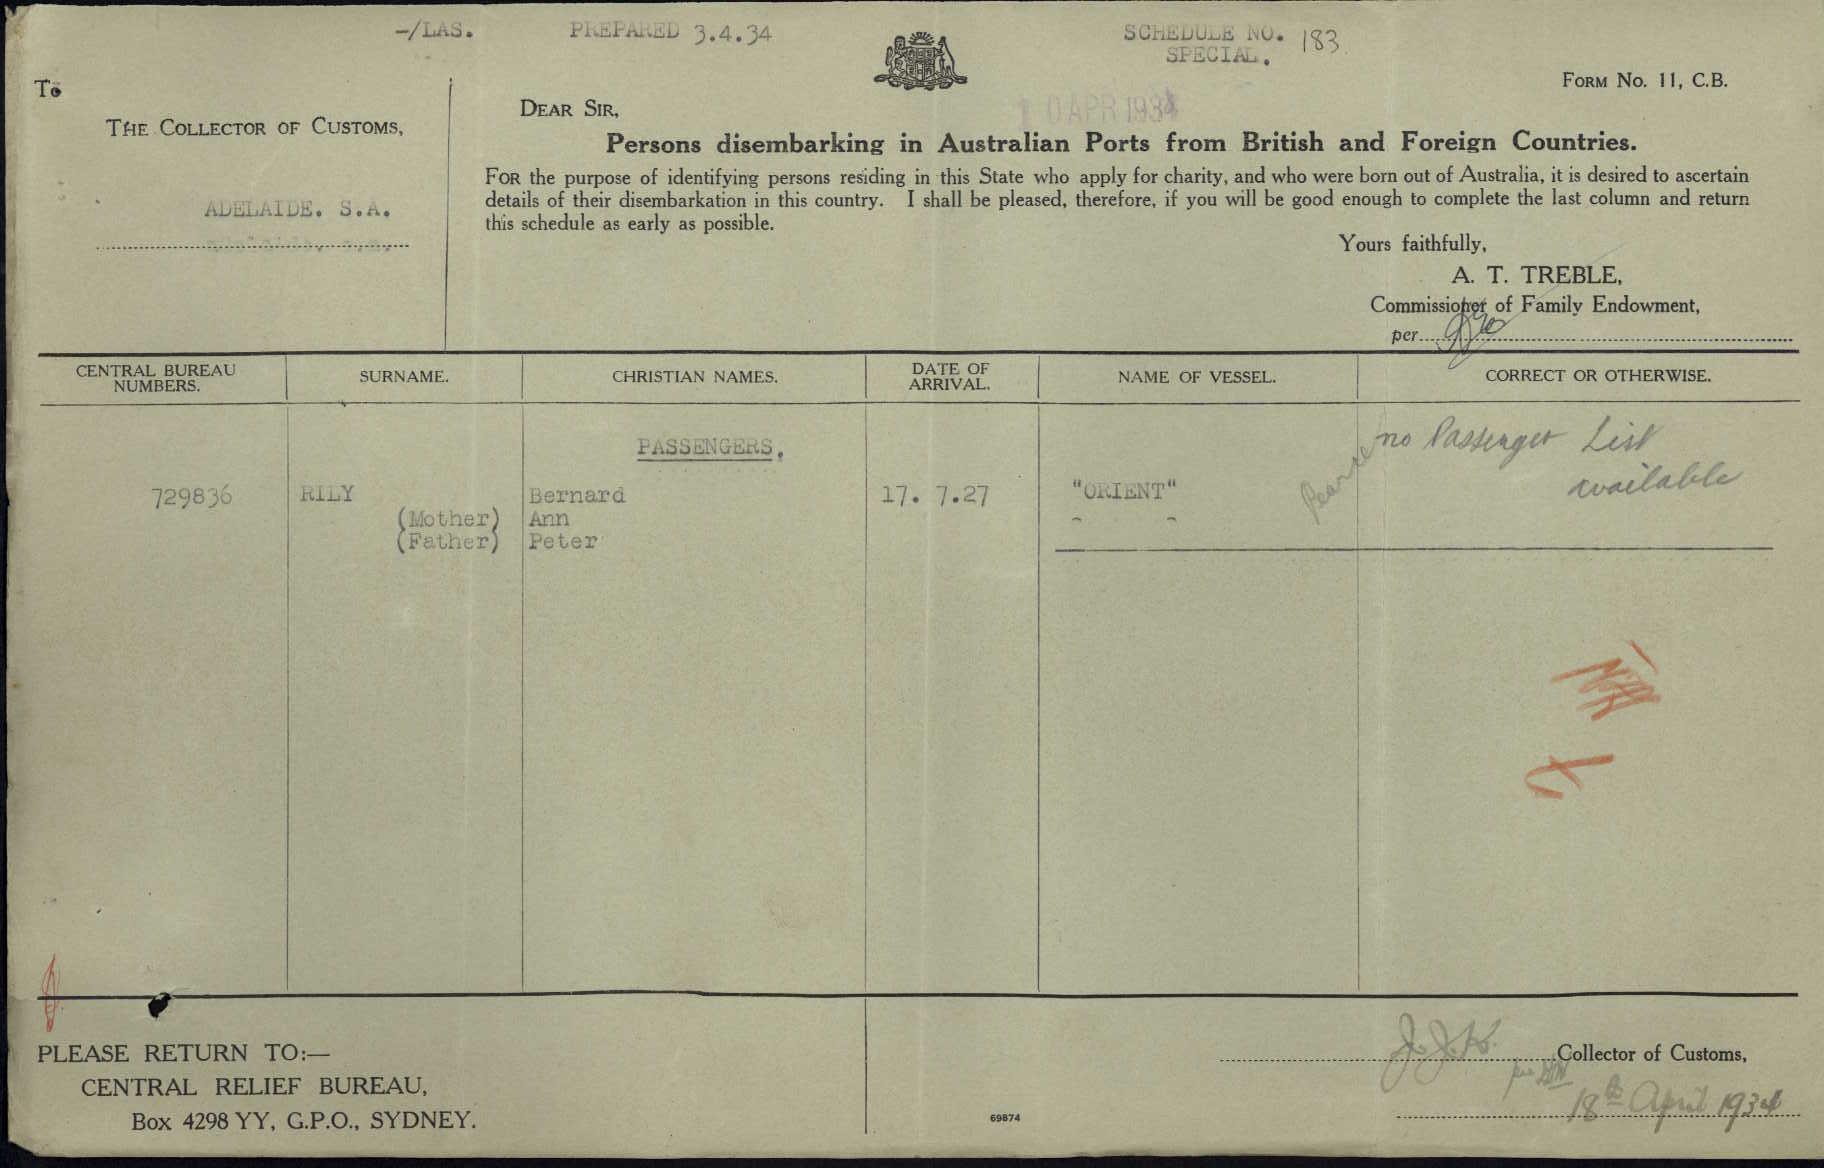 -/LAS. PREPARED 3.4.34 SCHEDULE NO. 183
SPECIAL.
To
FORM NO. 11, C.B.
THE COLLECTOR OF CUSTOMS,
ADELAIDE. S.A.
10 APR 1934
DEAR SIR,
Persons disembarking in Australian Ports from British and Foreign Countries.
FOR the purpose of identifying persons residing in this State who apply for charity, and who were born out of Australia, it is desired to ascertain
details of their disembarkation in this country. I shall be pleased, therefore, if you will be good enough to complete the last column and return
this schedule as early as possible.
Yours faithfully,
A. T. TREBLE,
Commissioner of Family Endowment,
per
CENTRAL BUREAU NUMBERS. SURNAME. CHRISTIAN NAMES. DATE OF ARRIVAL. NAME OF VESSEL. CORRECT OR OTHERWISE.
PASSENGERS. no Passenger List
available
729836 RILY Bernard 17. 7.27 "ORIENT"
(Mother) Ann
(Father) Peter
PLEASE RETURN TO:—
CENTRAL RELIEF BUREAU,
Box 4298 YY, G.P.O., SYDNEY.
69874
J.J.K. Collector of Customs,
18th April 1934